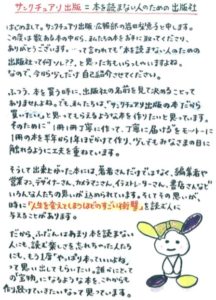 サンクチュアリ出版 = 本を読まない人のための出版社
はじめまして。サンクチュアリ出版 広報部の岩田です。
この度は数ある本の中から、私たちの本をお手に取ってくださり、
ありがとうございます。…って言われても「本を読まない人のための
出版社って何ソレ??」と思った方もいらっしゃいますよね。
なので、今から少しだけ自己紹介させてください。
ふつう、本を買う時に、出版社の名前を見て決めることって
ありませんよね。でも、私たちは、「サンクチュアリ出版の本だから
買いたい」と思ってもらえるような本を作りたいと思っています。
そのために"1冊1冊丁寧に作って、丁寧に届ける"をモットーに
1冊の本を半年から1年ほどかけて作り、少しでもみなさまの目に
触れるように工夫を重ねています。
そうして出来上がった本には、著者さんだけではなく、編集者や
営業マン、デザイナーさん、カメラマンさん、イラストレーターさん、書店さんなど
いろんな人たちの思いが込められています。そしてその思いが、
時に「人生を変えてしまうほどのすごい衝撃」を読む人に
与えることがあります。
だから、ふだんはあまり本を読まない
人にも、読む楽しさを忘れちゃった人たち
にも、もう1度「やっぱり本っていいよね」
って思い出してもらいたい。誰かにとって
の"宝物"になるような本を、これからも
作り続けていきたいなって思ってます。